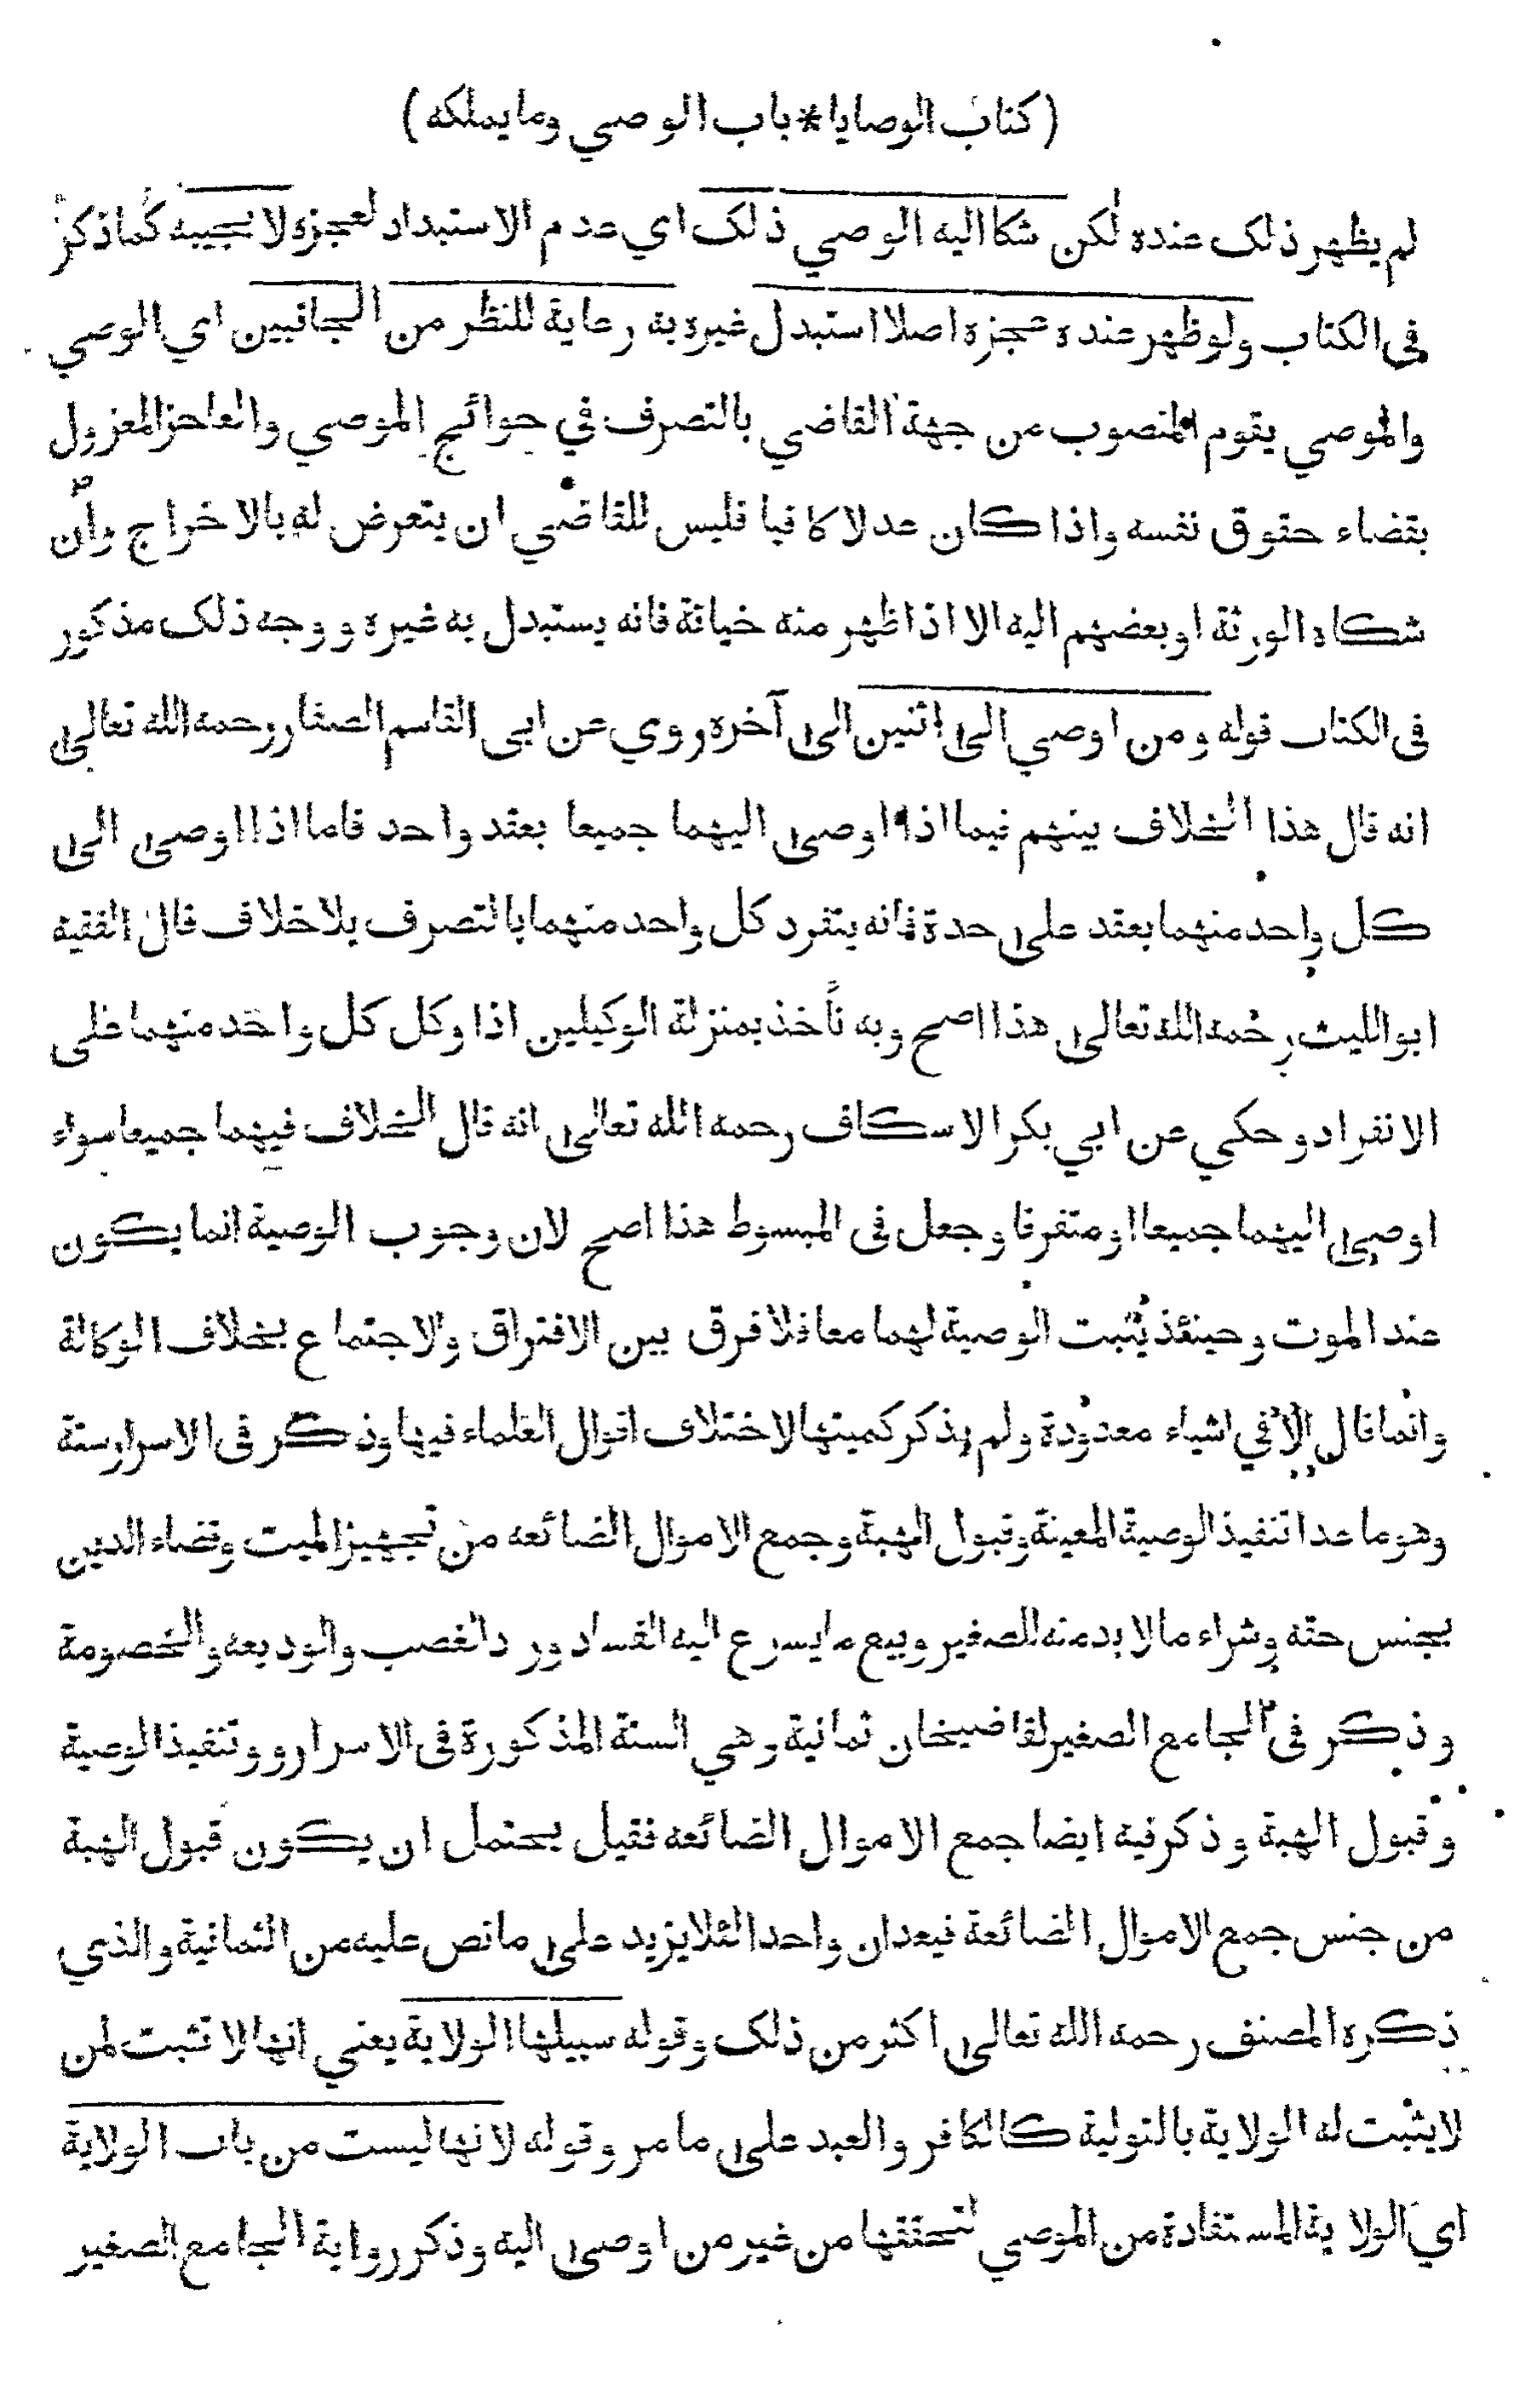 (كتاب الوصايا * باب الوصي وما يملكه)
لم يظهر ذلك عنده لكن شكا اليه الوصي ذلك اي عدم الاستبداد لعجزه لا يجيبه كما ذكر
في الكتاب ولو ظهر عنده عجزه اصلا استبدل غيره به رعاية للنظر من الجانبين اي الوصي
والموصي يقوم المنصوب من جهة القاضي بالتصرف في حوائج الموصي والعاجز المعزول
بقضاء حقوق نفسه واذا كان عدلا كافيا فليس للقاضي ان يتعرض له بالاخراج وان
شكاه الورثة او بعضهم اليه الا اذا ظهر منه خيانة فانه يستبدل به غيره ووجه ذلك مذكور
في الكتاب قوله ومن اوصي الى اثنين الى آخره روي عن ابي القاسم الصفار رحمه الله تعالى
انه قال هذا الخلاف بينهم فيما اذا اوصى اليهما جميعا بعقد واحد فاما اذا اوصى الى
كل واحد منهما بعقد على حدة فانه يتفرد كل واحد منهما بالتصرف بلا خلاف قال الفقيه
ابو الليث رحمه الله تعالى هذا اصح وبه نأخذ بمنزلة الوكيلين اذا وكل كل واحد منهما على
الانفراد وحكي عن ابي بكر الاسكاف رحمه الله تعالى انه قال الخلاف فيهما جميعا سواء
اوصى اليهما جميعا او متفرقا وجعل في المبسوط هذا اصح لان وجوب الوصية انما يكون
عند الموت وحينئذ يثبت الوصية لهما معا فلا فرق بين الافتراق والاجتماع بخلاف الوكالة
وانما قال الا في اشياء معدودة ولم يذكر كميتها لاختلاف اقوال العلماء فيها وذكر في الاسرار ستة
وهو ما عدا تنفيذ الوصية المعينة وقبول الهبة وجمع الاموال الضائعه من تجهيز الميت وقضاء الدين
بجنس حقه وشراء ما لا بد منه للصغير وبيع ما يسرع اليه الفساد ورد الغصب والوديعه والخصومة
وذكر في الجامع الصغير لقاضيخان ثمانية وهي الستة المذكورة في الاسرار وو تنفيذ الوصية
وقبول الهبة وذكر فيه ايضا جمع الاموال الضائعه فقيل يحتمل ان يكون قبول الهبة
من جنس جمع الاموال الضائعة فيعدان واحدا لئلا يزيد على ما نص عليه من الثمانية والذي
ذكره المصنف رحمه الله تعالى اكثر من ذلك وقوله سبيلها الولاية يعني انها لا تثبت لمن
لا يثبت له الولاية بالتولية كالكافر والعبد على ما مر وقوله لانها ليست من باب الولاية
اي الولاية المستفادة من الموصي لتحققها من غير من اوصى اليه وذكر رواية الجامع الصغير